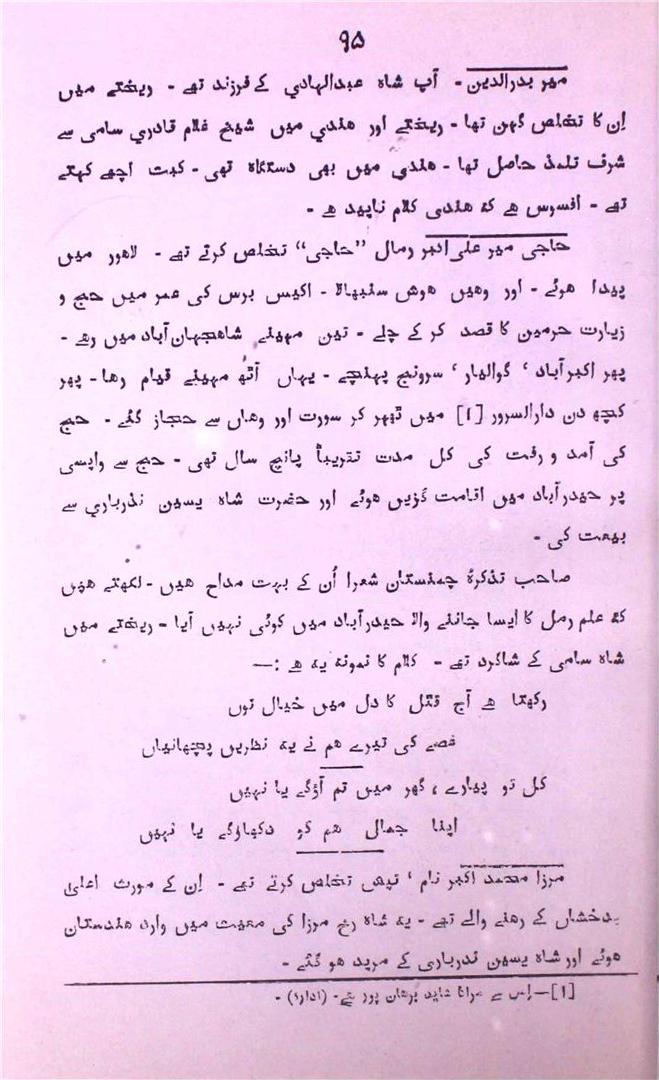 ۹۵
میر بدرالدین - آپ شاہ عبدالہادی کے فرزند تھے - ریختے میں
اِن کا تخلص کہن تھا - ریختے اور ہندی میں شیخ غلام قادری سامی سے
شرف تلمذ حاصل تھا - ہندی میں بھی دستگاہ تھی - کبت اچھے کہتے
تھے - افسوس ہے کہ ہندی کلام ناپید ہے -
حاجی میر علی اکبر رمال ”حاجی“ تخلص کرتے تھے - لاہور میں
پیدا ہوئے - اور وہیں ہوش سنبھالا - اکیس برس کی عمر میں حج و
زیارت حرمین کا قصد کر کے چلے - تین مہینے شاہجہان آباد میں رہے -
پھر اکبر آباد ‘ گوالیار ‘ سرونج پہنچے - یہاں آٹھ مہینے قیام رہا - پھر
کچھ دن دارالسرور [۱] میں ٹھہر کر سورت اور وہاں سے حجاز گئے - حج
کی آمد و رفت کی کل مدت تقریباً پانچ سال تھی - حج سے واپسی
پر حیدرآباد میں اقامت گزیں ہوئے اور حضرت شاہ یسین ندرباری سے
بیعت کی -
صاحب تذکرۂ چمنستان شعرا اُن کے بہت مداح ہیں - لکھتے ہیں
کہ علم رمل کا ایسا جاننے والا حیدرآباد میں کوئی نہیں آیا - ریختے میں
شاہ سامی کے شاگرد تھے - کلام کا نمونہ یہ ہے :—
رکھتا ہے آج قتل کا دل میں خیال توں
غصے کی تیرے ہم نے یہ نظریں پچھانیاں
کل تو پیارے ، گھر میں تم آؤگے یا نہیں
اپنا جمال ہم کو دکھاؤگے یا نہیں
مرزا محمد اکبر نام ‘ تپش تخلص کرتے تھے - اِن کے مورث اعلیٰ
بدخشاں کے رہنے والے تھے - یہ شاہ رخ مرزا کی معیت میں وارد ہندستان
ہوئے اور شاہ یسین ندرباری کے مرید ہو گئے -
[۱]—اِس سے مراد شاید برہان پور ہے - (ادارہ) -